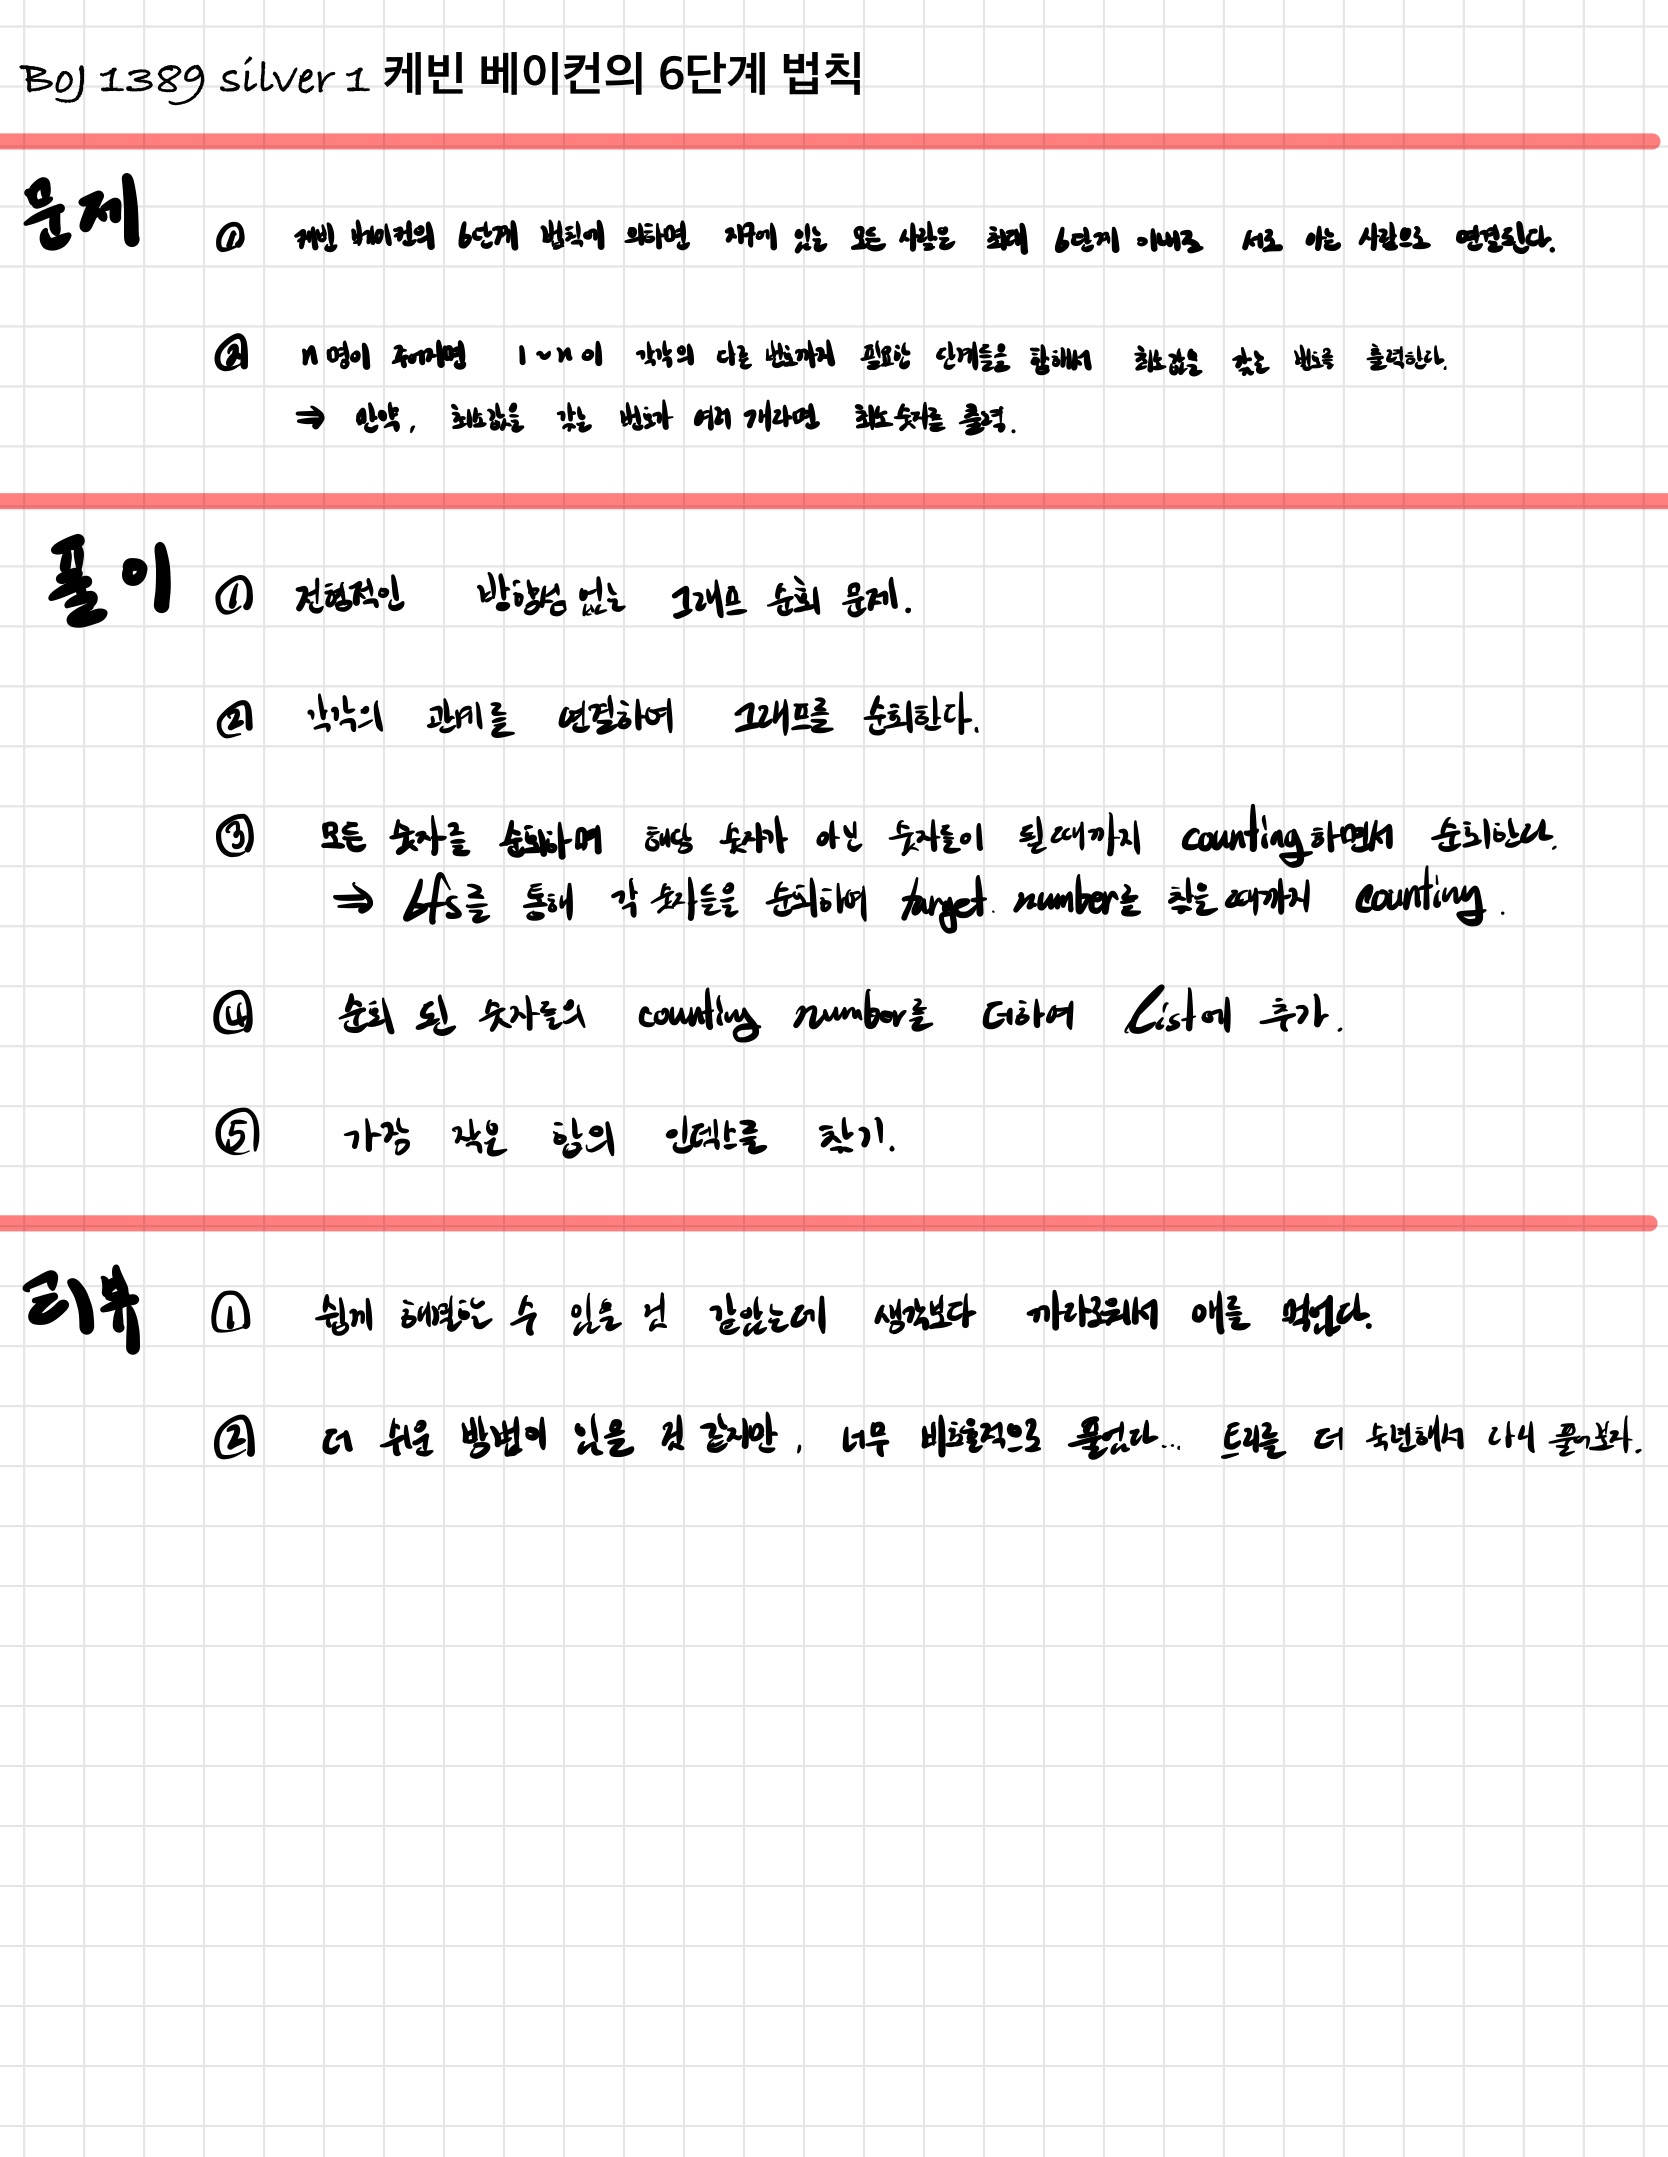 BOJ 1389 silver 1 케빈 베이컨의 6단계 법칙
문제
① 케빈 베이컨의 6단계 법칙에 의하면 지구에 있는 모든 사람은 최대 6단계 이내로 서로 아는 사람으로 연결된다.
② n명이 주어지면 1~n이 각각의 다른 번호까지 필요한 단계들을 합해서 최소값을 갖는 번호를 출력한다.
⇒ 만약, 최소값을 갖는 번호가 여러 개라면 최소 숫자를 출력.
풀이
① 전형적인 방향성 없는 그래프 순회 문제.
② 각각의 관계를 연결하여 그래프를 순회한다.
③ 모든 숫자를 순회하며 해당 숫자가 아닌 숫자들이 될때까지 counting하면서 순회한다.
⇒ bfs를 통해 각 숫자들을 순회하며 target number를 찾을때까지 counting.
④ 순회 된 숫자들의 counting number를 더하여 List에 추가.
⑤ 가장 작은 합의 인덱스를 찾기.
리뷰
① 쉽게 해결하는 수 있을 건 같았는데 생각보다 까다로워서 애를 먹었다.
② 더 쉬운 방법이 있을 것 같지만, 너무 비효율적으로 풀었다... 트리를 더 숙련해서 다시 풀어보자.